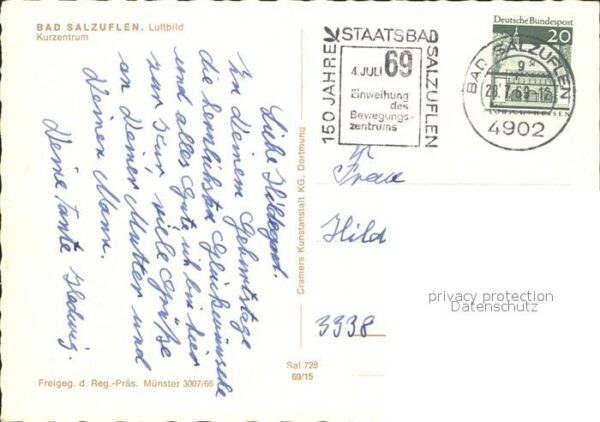 BAD SALZUFLEN. Luftbild
Kurzentrum
Liebe Hildegard.
Zu Deinem Geburtstage
die herzlichsten Glückwünsche
und alles Gute ich bin hier
zur Kur, viele Grüße
an Deine Mutter und
Deinen Mann.
Deine Tante Hedwig.
Freigeg. d. Reg.-Präs. Münster 3007/66
Cramers Kunstanstalt KG. Dortmund
Sal 728
69/15
150 JAHRE
STAATSBAD
SALZUFLEN
4. JULI 69
Einweihung
des
Bewegungs-
zentrums
Deutsche Bundespost
20
BAD SALZUFLEN
4902
Frau
Hild
3338
privacy protection
Datenschutz